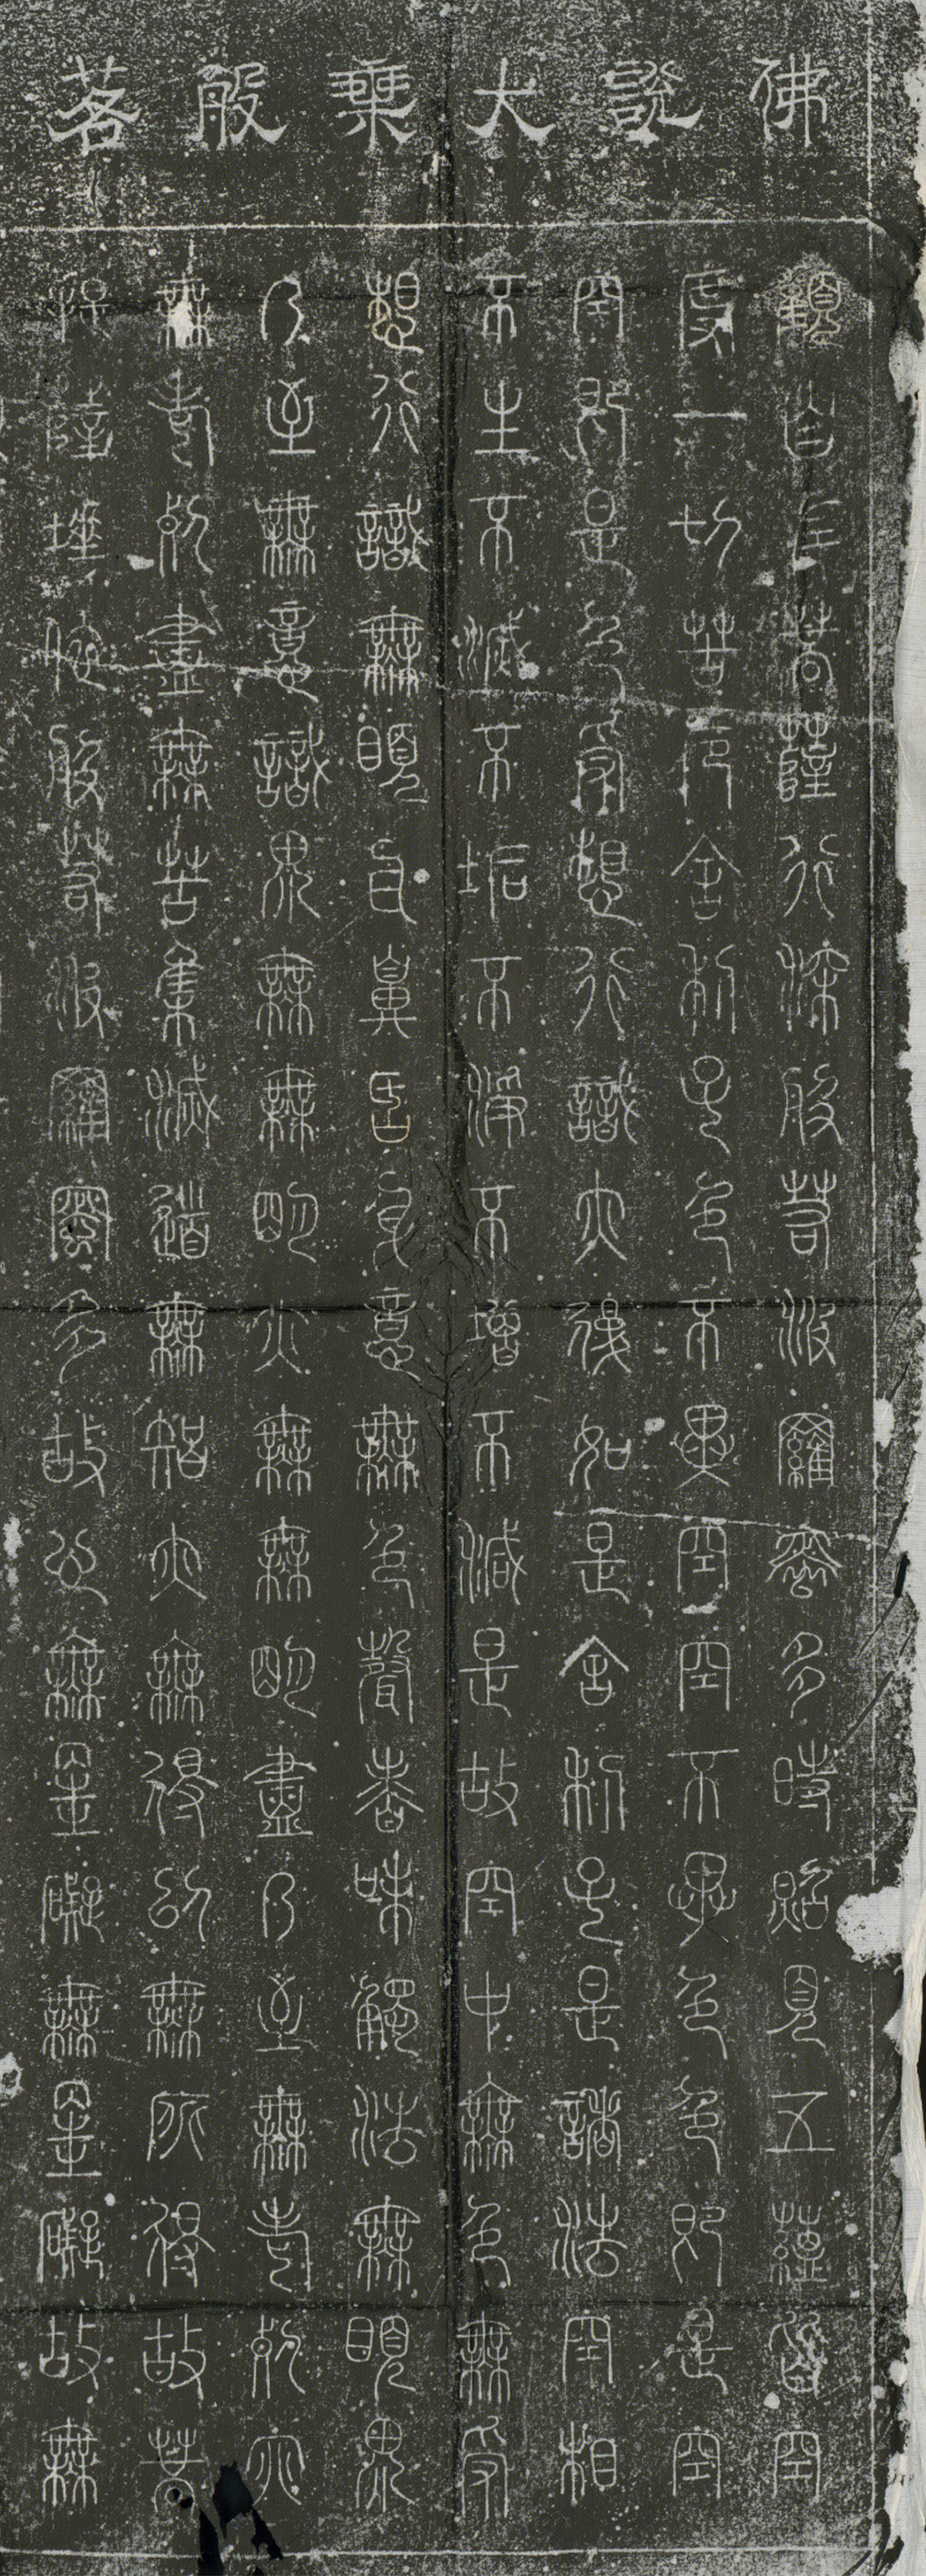 佛說大乘般若
觀自在菩薩行深般若波羅蜜多時照見五蘊皆空
度一切苦厄舍利子色不異空空不異色色即是空
空即是色受想行識亦復如是舍利子是諸法空相
不生不滅不垢不淨不增不減是故空中無色無受
想行識無眼耳鼻舌身意無色聲香味觸法無眼界
乃至無意識界無無明亦無無明盡乃至無老死亦
無老死盡無苦集滅道無智亦無得以無所得故菩
提薩埵依般若波羅蜜多故心無罣礙無罣礙故無